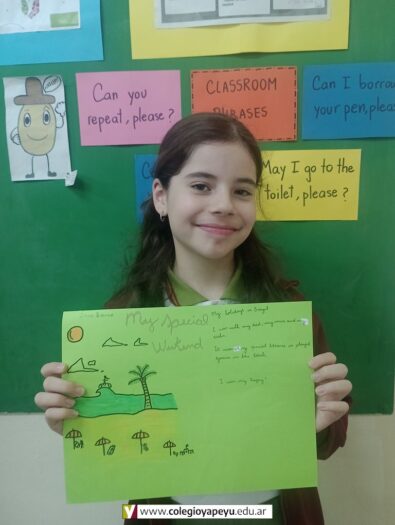 Can you
repeat, please?
CLASSROOM
PHRASES
Can I borrow
your pen, please
May I go to the
toilet, please?
My special
Weekend
My holidays in Brazil
I was with my dad, my mom and my
I was very happy!
www.colegioyapeyu.edu.ar